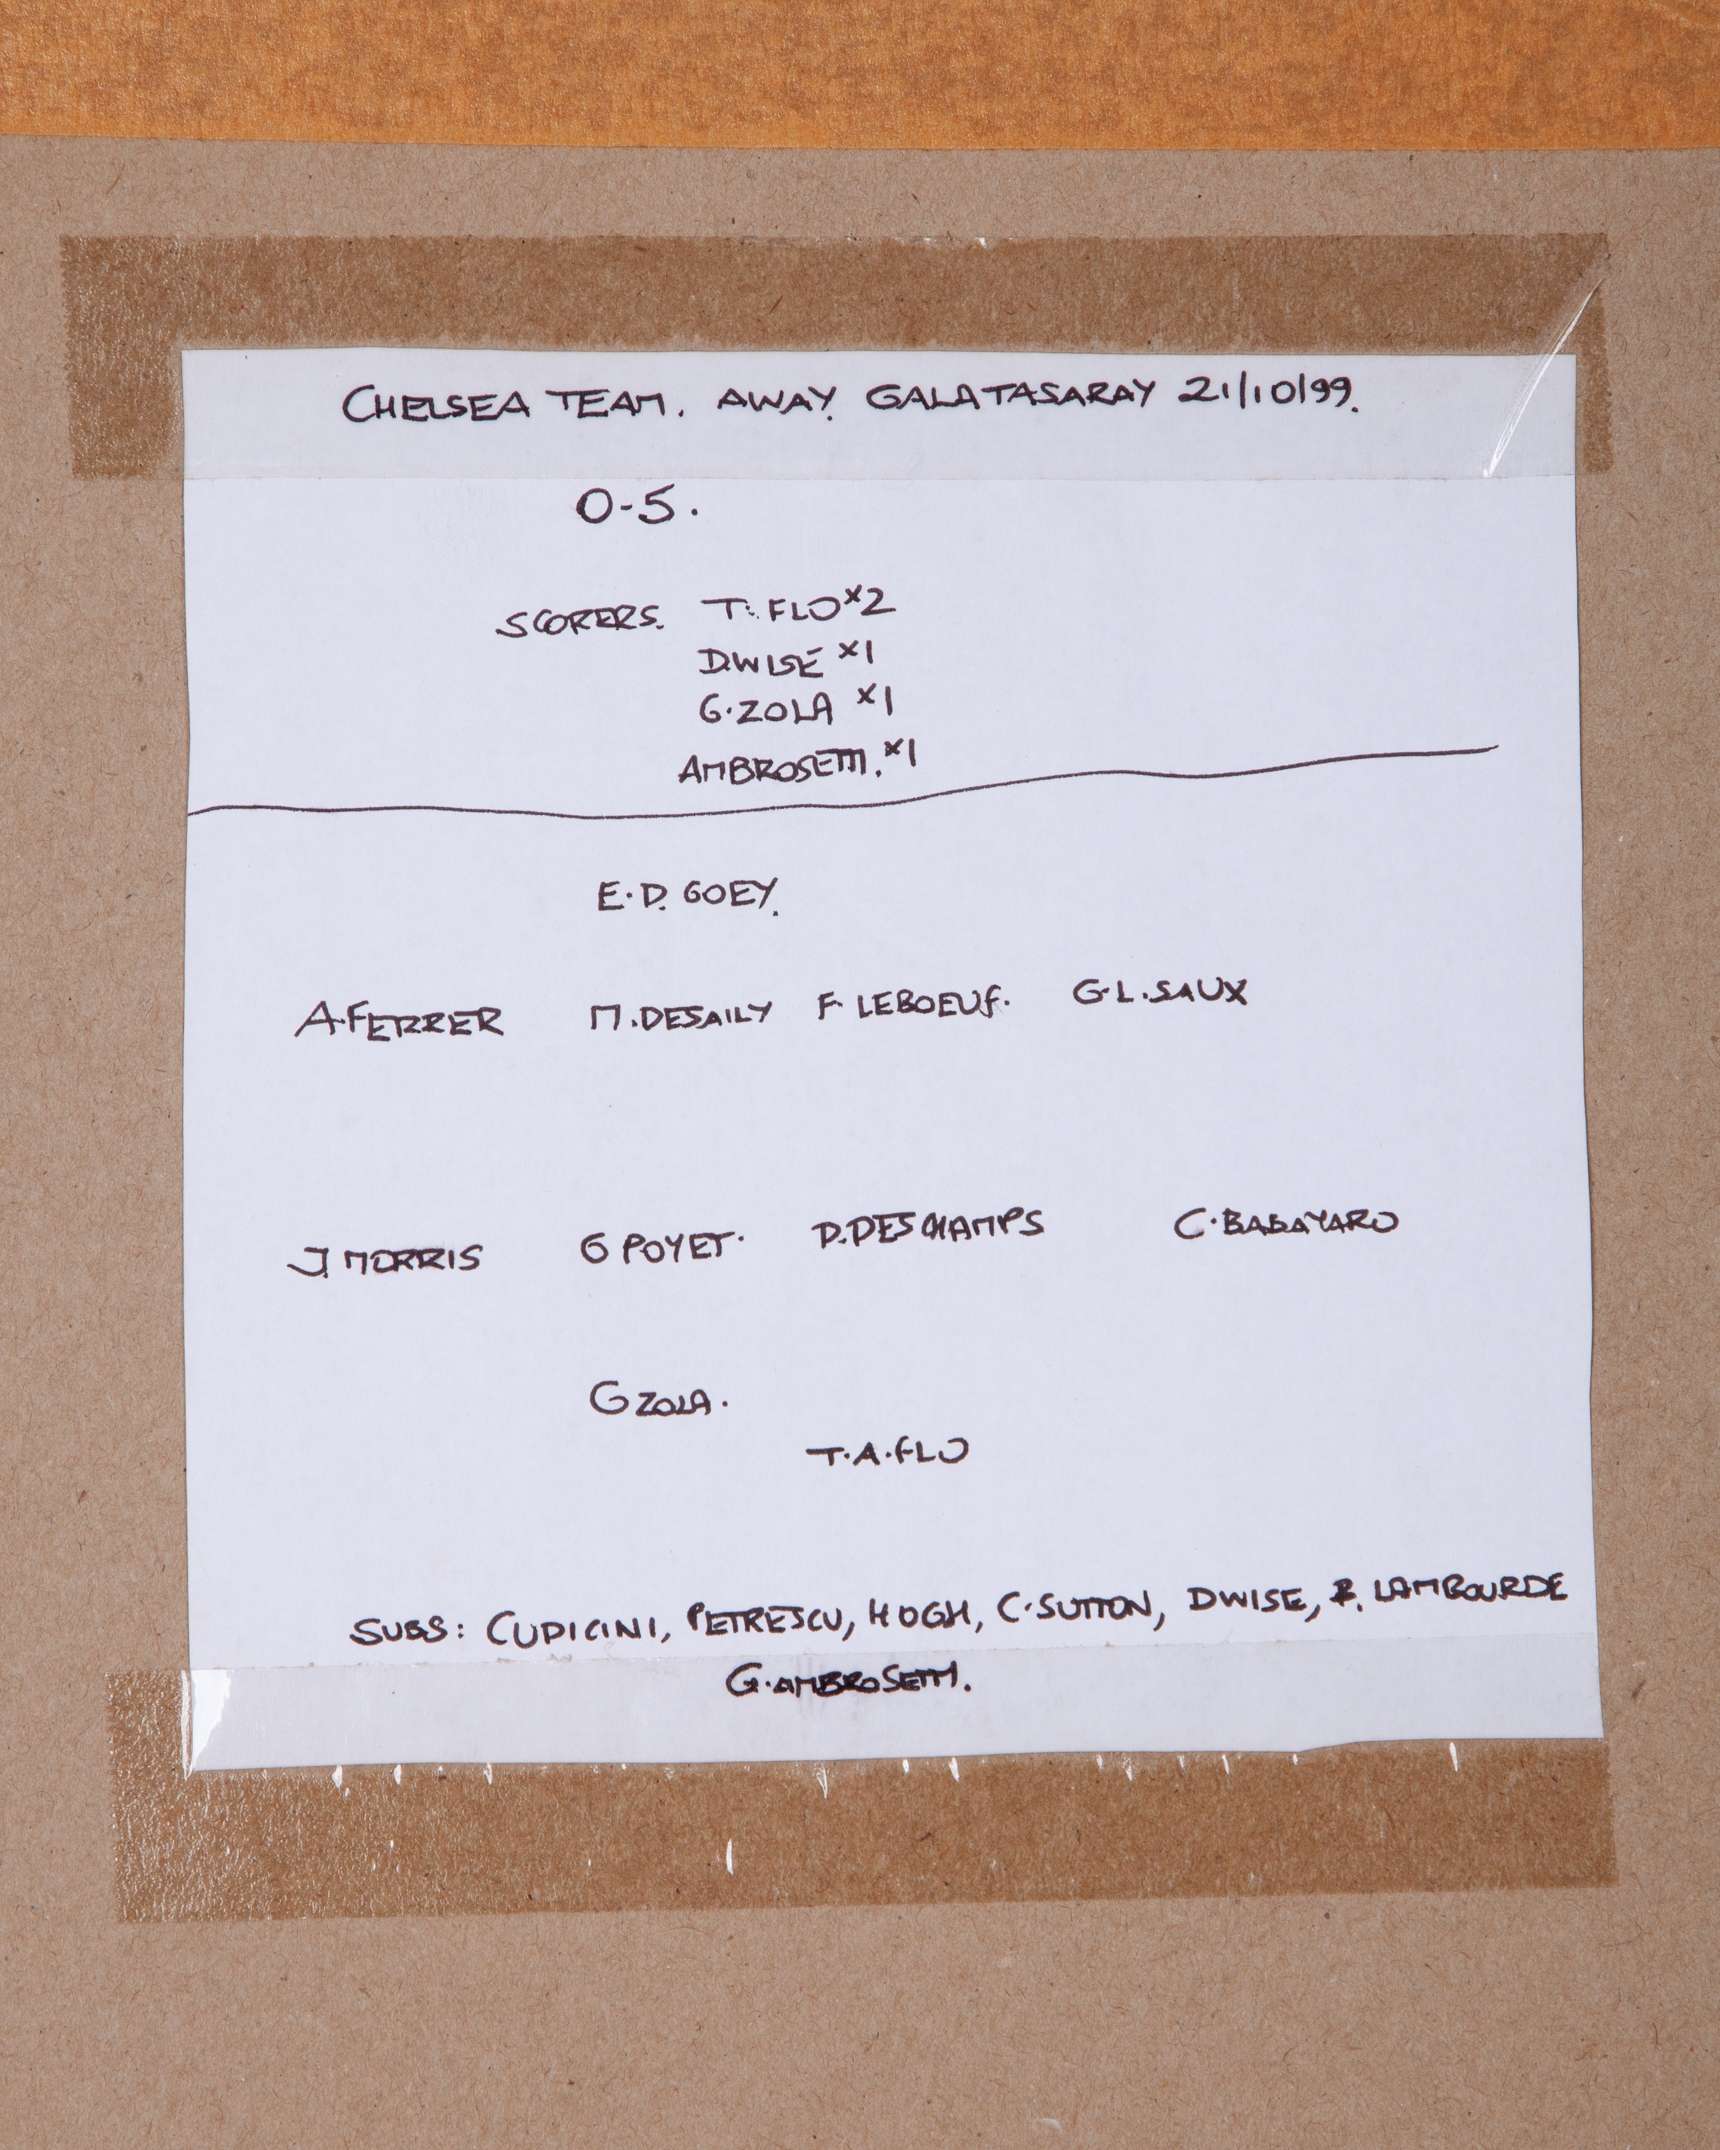 CHELSEA TEAM. AWAY. GALATASARAY 21/10/99.
0-5.
SCORERS. T. FLO x2
D.WISE x1
G.ZOLA x1
AMBROSETTI. x1
E.D. GOEY.
A.FERRER M.DESAILY F. LEBOEUF. G.L.SAUX
J.MORRIS G POYET. D.DESCHAMPS C.BABAYARO
G ZOLA.
T.A.FLO
SUBS: CUDICINI, PETRESCU, HOGH, C.SUTTON, D WISE, B. LAMBOURDE
G.AMBROSETTI.